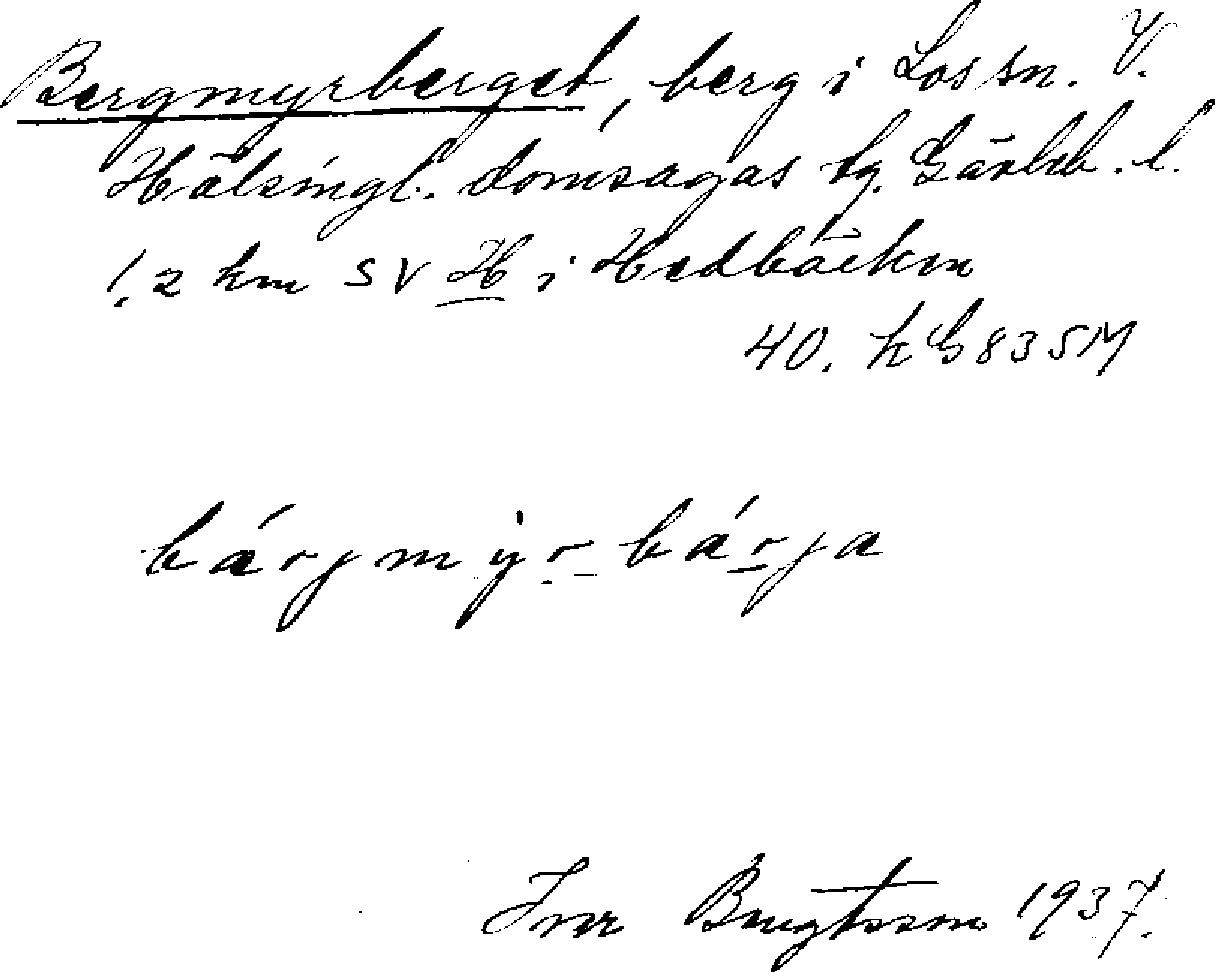 Bergmyrberget, berg i Los sn. V.
Hälsingl. domsagas tg. Gävleb. l.
1,2 km SV H i Hedbäcken
40. k G 83 SM
bárjmýr bárja
Iver Bengtsson 1937.